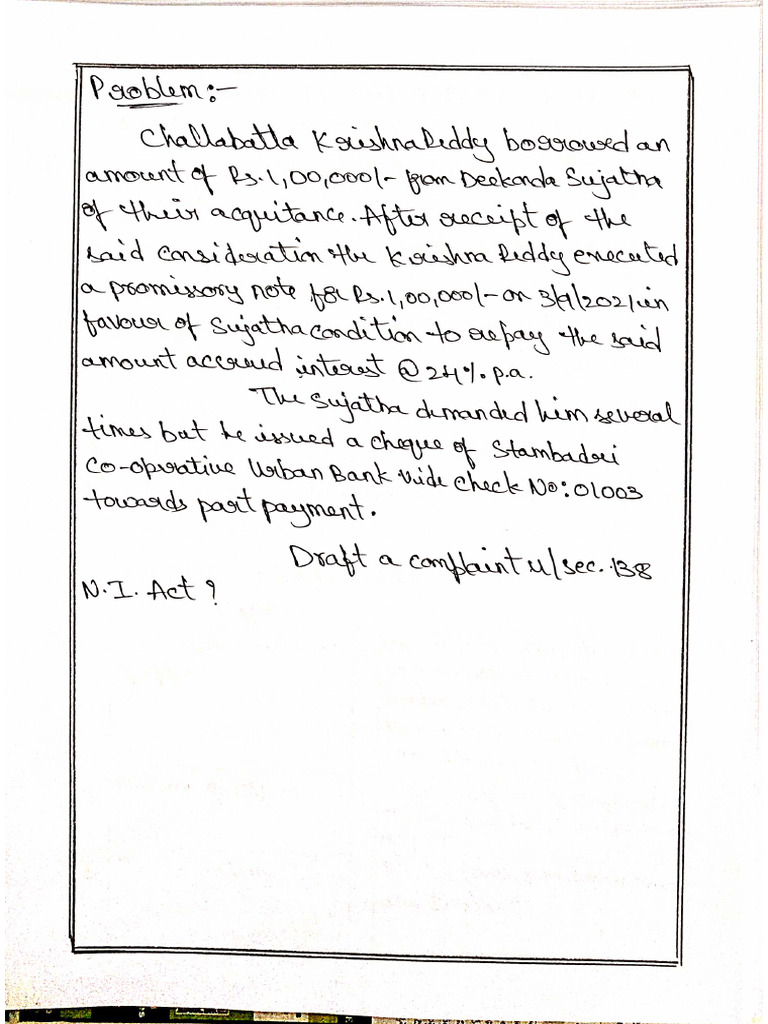 Problem:-
Challabatla Krishna Reddy borrowed an
amount of Rs.1,00,000/- from Deekonda Sujatha
of their acquitance. After receipt of the
said consideration the Krishna Reddy executed
a promissory note for Rs.1,00,000/- on 3/9/2021 in
favour of Sujatha condition to repay the said
amount accured interest @ 24% p.a.
The Sujatha demanded him several
times but he issued a cheque of Stambadri
Co-operative Urban Bank vide check No: 01003
towards part payment.
Draft a complaint u/sec. 138
N.I. Act ?